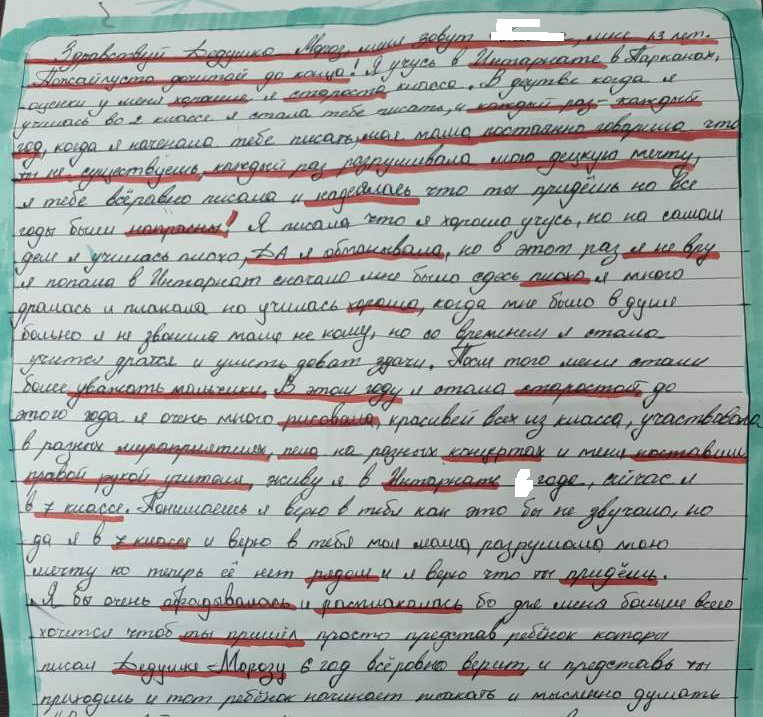 Здравствуй Дедушка Мороз, меня зовут , мне 13 лет.
Пожайлуста дочитай до конца! Я учусь в Интарнате в Парканах,
оценки у меня хорошие я староста класса. В децтве когда я
училась во 2 классе я стала тебе писать, и каждый раз- каждый
год, когда я наченала тебе писать, моя мама постоянно говорила что
ты не существуешь, каждый раз разрушивала мою децкую мечту,
я тебе всёравно писала и надеелась что ты придёшь но все
годы были напрасны! Я писала что я хорошо учусь, но на самом
деле я училась плохо, ДА я обманывала, но в этот раз я не вру
я попала в Интарнат сначало мне было сдесь плохо я много
дралась и плакала но училась хорошо, когда мне было в душе
больно я не звонила маме не кому, но со временем я стала
учится дратся и уметь доват здачи. После того меня стали
более уважать мальчики. В этом году я стала старостой, до
этого года я очень много рисовала, красивей всех из класса, участвовала
в разных мероприятиях, пела на разных концертах и меня поставили
правой рукой учителя, живу я в Интарнате года, сейчас я
в 7 классе. Понимаешь я верю в тебя как это бы не звучало, но
да я в 7 классе и верю в тебя моя мама разрушала мою
мечту но теперь её нет рядом и я верю что ты придёшь.
Я бы очень обрадывалась и расплакалась бо для меня больше всего
хочится чтоб ты пришёл просто представ ребёнок которы
писал Дедушке Морозу 6 год всёровно верит, и представь ты
приходишь и тот ребёнок начинает плакать и мысленно думать